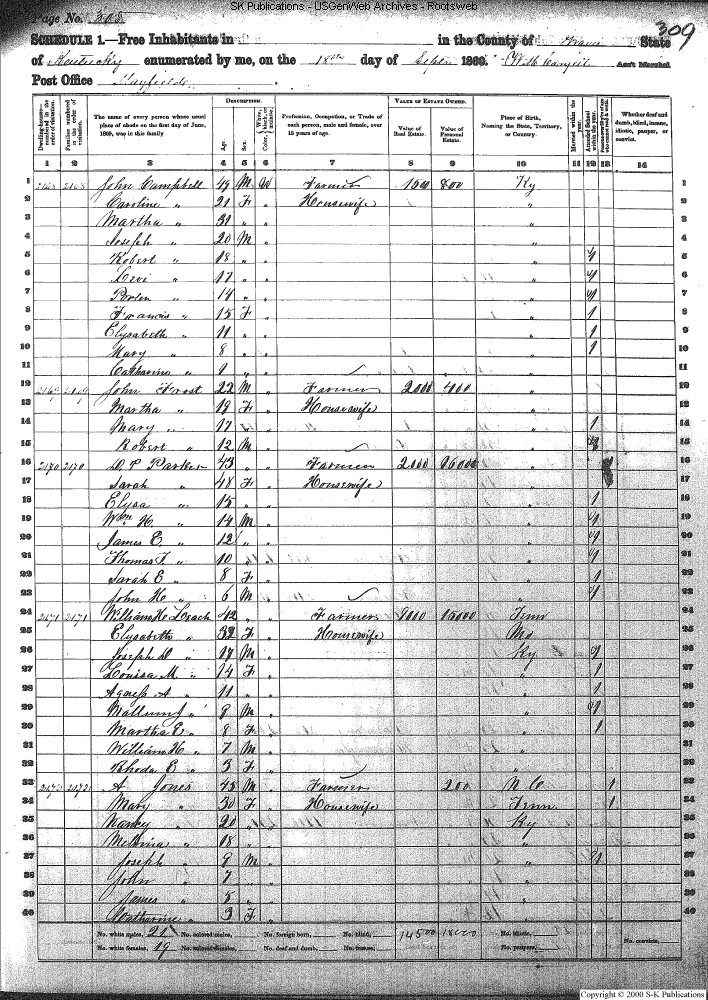 SK Publications - USGenWeb Archives - Rootsweb
Page No. 308
309
SCHEDULE 1.—Free Inhabitants in in the County of Graves State
of Kentucky enumerated by me, on the 18th day of Septr 1860. Ass't Marshal
Post Office Mayfield
Dwelling-houses—numbered in the order of visitation.
Families numbered in the order of visitation.
The name of every person whose usual place of abode on the first day of June, 1860, was in this family
DESCRIPTION.
Age.
Sex.
Profession, Occupation, or Trade of each person, male and female, over 15 years of age.
VALUE OF ESTATE OWNED.
Value of Real Estate.
Value of Personal Estate.
Place of Birth, Naming the State, Territory, or Country.
Married within the year.
Attended School within the year.
Whether deaf and dumb, blind, insane, idiotic, pauper, or convict.
1 2 3 4 5 6 7 8 9 10 11 12 13 14
1 2168 2168 John Campbell 49 M W Farmer 1500 800 Ky 1
2 Caroline " 21 F " Housewife " 2
3 Martha " 31 " " " 3
4 Joseph " 20 M " " 4
5 Robert " 18 " " " 1 5
6 Levi " 17 " " " 1 6
7 " 14 " " " 1 7
8 Francis " 15 F " " 1 8
9 Elysabeth " 11 " " " 1 9
10 Mary " 8 " " " 1 10
11 Catharine " 1 " " " 11
12 2169 2169 John Frost 22 M " Farmer 2000 400 " 12
13 Martha " 19 F " Housewife " 13
14 Mary " 17 " " " 1 14
15 Robert " 12 M " " 1 15
16 2170 2170 D P Parker 43 " " Farmer 2000 " 16
17 Sarah " 48 F " Housewife " 17
18 Elysa " 15 " " " 1 18
19 Wm H " 14 M " " 1 19
20 James E " 12 " " " 1 20
21 Thomas F " 10 " " " 1 21
22 Sarah E " 8 F " " 1 22
23 John H " 6 M " " 1 23
24 2171 2171 William H Leach 42 " " Farmer 9000 15000 Tenn 24
25 Elysabeth " 32 F " Housewife Mo 25
26 Joseph D " 17 M " Ky 1 26
27 Louisa M " 14 F " " 1 27
28 Agness A " 11 " " " 1 28
29 " 9 M " " 1 29
30 Martha E " 8 F " " 1 30
31 William H " 7 M " " 31
32 Rhoda E " 3 F " " 32
33 2172 2172 A Jones 45 M " Farmer 200 N C 1 33
34 Mary " 30 F " Housewife Tenn 1 34
35 Nancy " 20 " " Ky 35
36 " 18 " " " 36
37 Joseph " 9 M " " 1 37
38 John " 7 " " " 38
39 James " 5 " " " 39
40 Catharine " 3 F " " 40
No. white males, 21 No. colored males, No. foreign born, No. blind, 14500 No. idiotic,
No. white females, 19 No. colored females, No. deaf and dumb, No. insane, No. paupers, No. convicts,
Copyright © 2000 S-K Publications